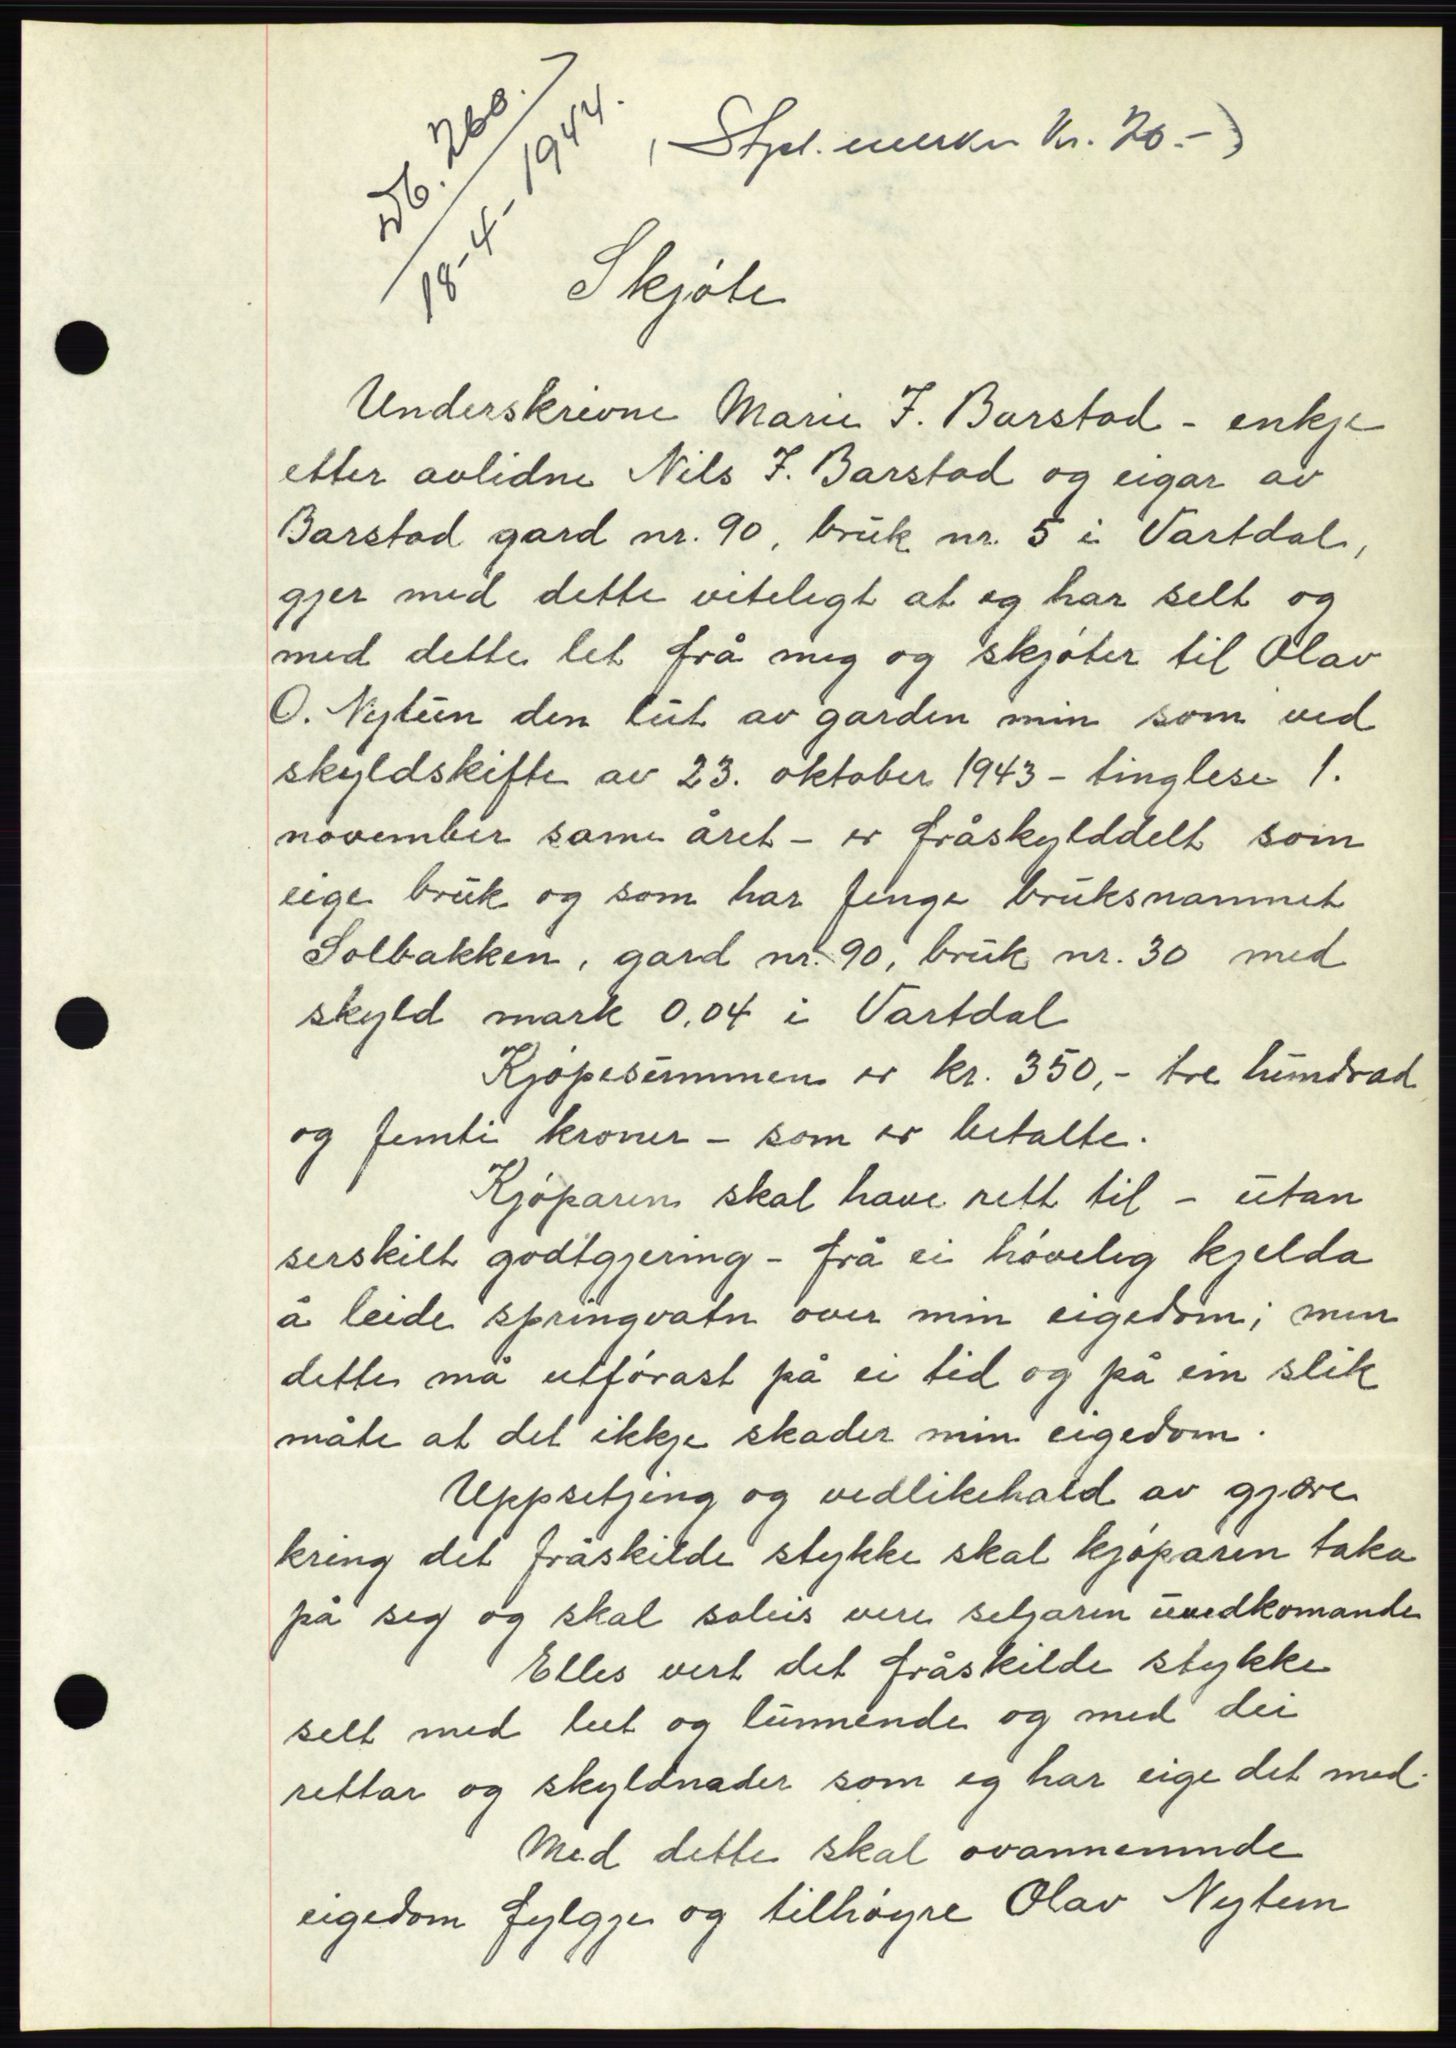 Db. 260.
18-4-1944.
(Stpl. merker Kr. 20.-)
Skjøte
Underskrevne Marie J. Barstad - enkje
etter avlidne Nils J. Barstad og eigar av
Barstad gard nr. 90, bruk nr. 5 i Vartdal,
gjer med dette vitelegt at eg har selt og
med dette let frå meg og skjøter til Olav
O. Nytun den lut av garden min som ved
skyldskifte av 23. oktober 1943 - tinglese 1.
november same året - er fråskylddelt som
eige bruk og som har fenge bruksnamnet
Solbakken, gard nr. 90, bruk nr. 30 med
skyld mark 0,04 i Vartdal
Kjøpesummen er kr. 350,- tre hundrad
og femti kroner - som er betalte.
Kjøparen skal have rett til - utan
serskilt godtgjering - frå ei høveleg kjelda
å leide springvatn over min eigedom; men
dette må utførast på ei tid og på ein slik
måte at det ikkje skader min eigedom.
Uppsetjing og vedlikehald av gjære
kring det fråskilde stykke skal kjøparen taka
på seg og skal soleis vere seljaren uvedkomande
Elles vert det fråskilde stykke
selt med lut og lunnende og med dei
rettar og skyldnader som eg har eige det med.
Med dette skal ovannemnde
eigedom fylgje og tilhøyre Olav Nytun